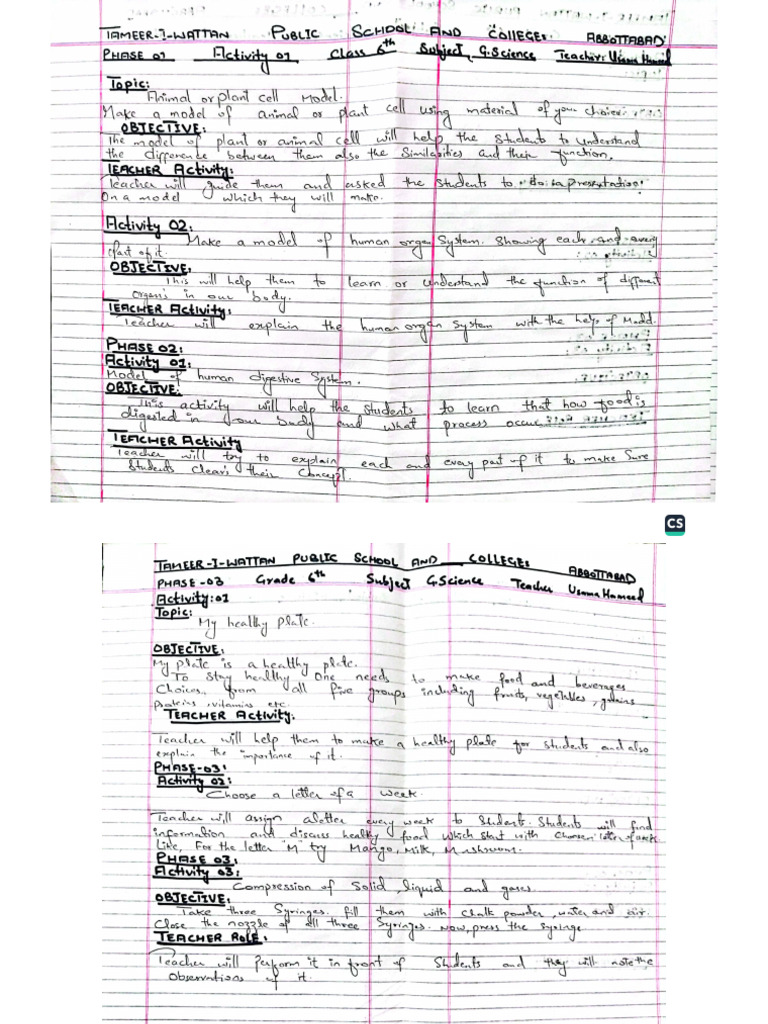 TAMEER-I-WATTAN PUBLIC SCHOOL AND COLLEGE: ABBOTTABAD
PHASE 01 Activity 01 Class 6th Subject, G.Science Teacher: Usama Hameed
Topic:
Animal or plant cell Model.
Make a model of animal or plant cell using material of your choice.
OBJECTIVE:
The model of plant or animal cell will help the students to understand
the difference between them also the similarities and their function.
TEACHER Activity:
Teacher will guide them and asked the students to do a presentation
On a model which they will make.
Activity 02:
Make a model of human organ System. Showing each and every
part of it.
OBJECTIVE:
This will help them to learn or understand the function of different
organs in our body.
TEACHER Activity:
Teacher will explain the human organ system with the help of Model.
PHASE 02:
Activity 01:
Model of human digestive System.
OBJECTIVE:
This activity will help the students to learn that how food is
digested in our body and what process occur.
TEACHER Activity
Teacher will try to explain each and every part of it to make sure
Students clears their Concept.
CS
TAMEER-I-WATTAN PUBLIC SCHOOL AND COLLEGE: ABBOTTABAD
PHASE-03 Grade 6th Subject G.Science Teacher Usama Hameed
Activity:01
Topic:
My healthy Plate.
OBJECTIVE:
My plate is a healthy plate.
To stay healthy One needs to make food and beverages
Choices, from all five groups including fruits, vegetables, grains
proteins, vitamins etc.
TEACHER Activity.
Teacher will help them to make a healthy plate for students and also
explain the importance of it.
PHASE-03:
Activity 02:
Choose a letter of a week.
Teacher will assign a letter every week to Students. Students will find
information and discuss healthy food which start with Choosen letter of week
Like, For the letter "M" try Mango, Milk, Mushrooms.
PHASE 03:
Activity 03:
Compression of Solid, liquid and gases.
OBJECTIVE:
Take three Syringes. fill them with chalk powder, water and air.
Close the nozzle of all three Syringes. Now, press the syringe
TEACHER ROLE:
Teacher will perform it in front of Students and they will note the
Observations of it.